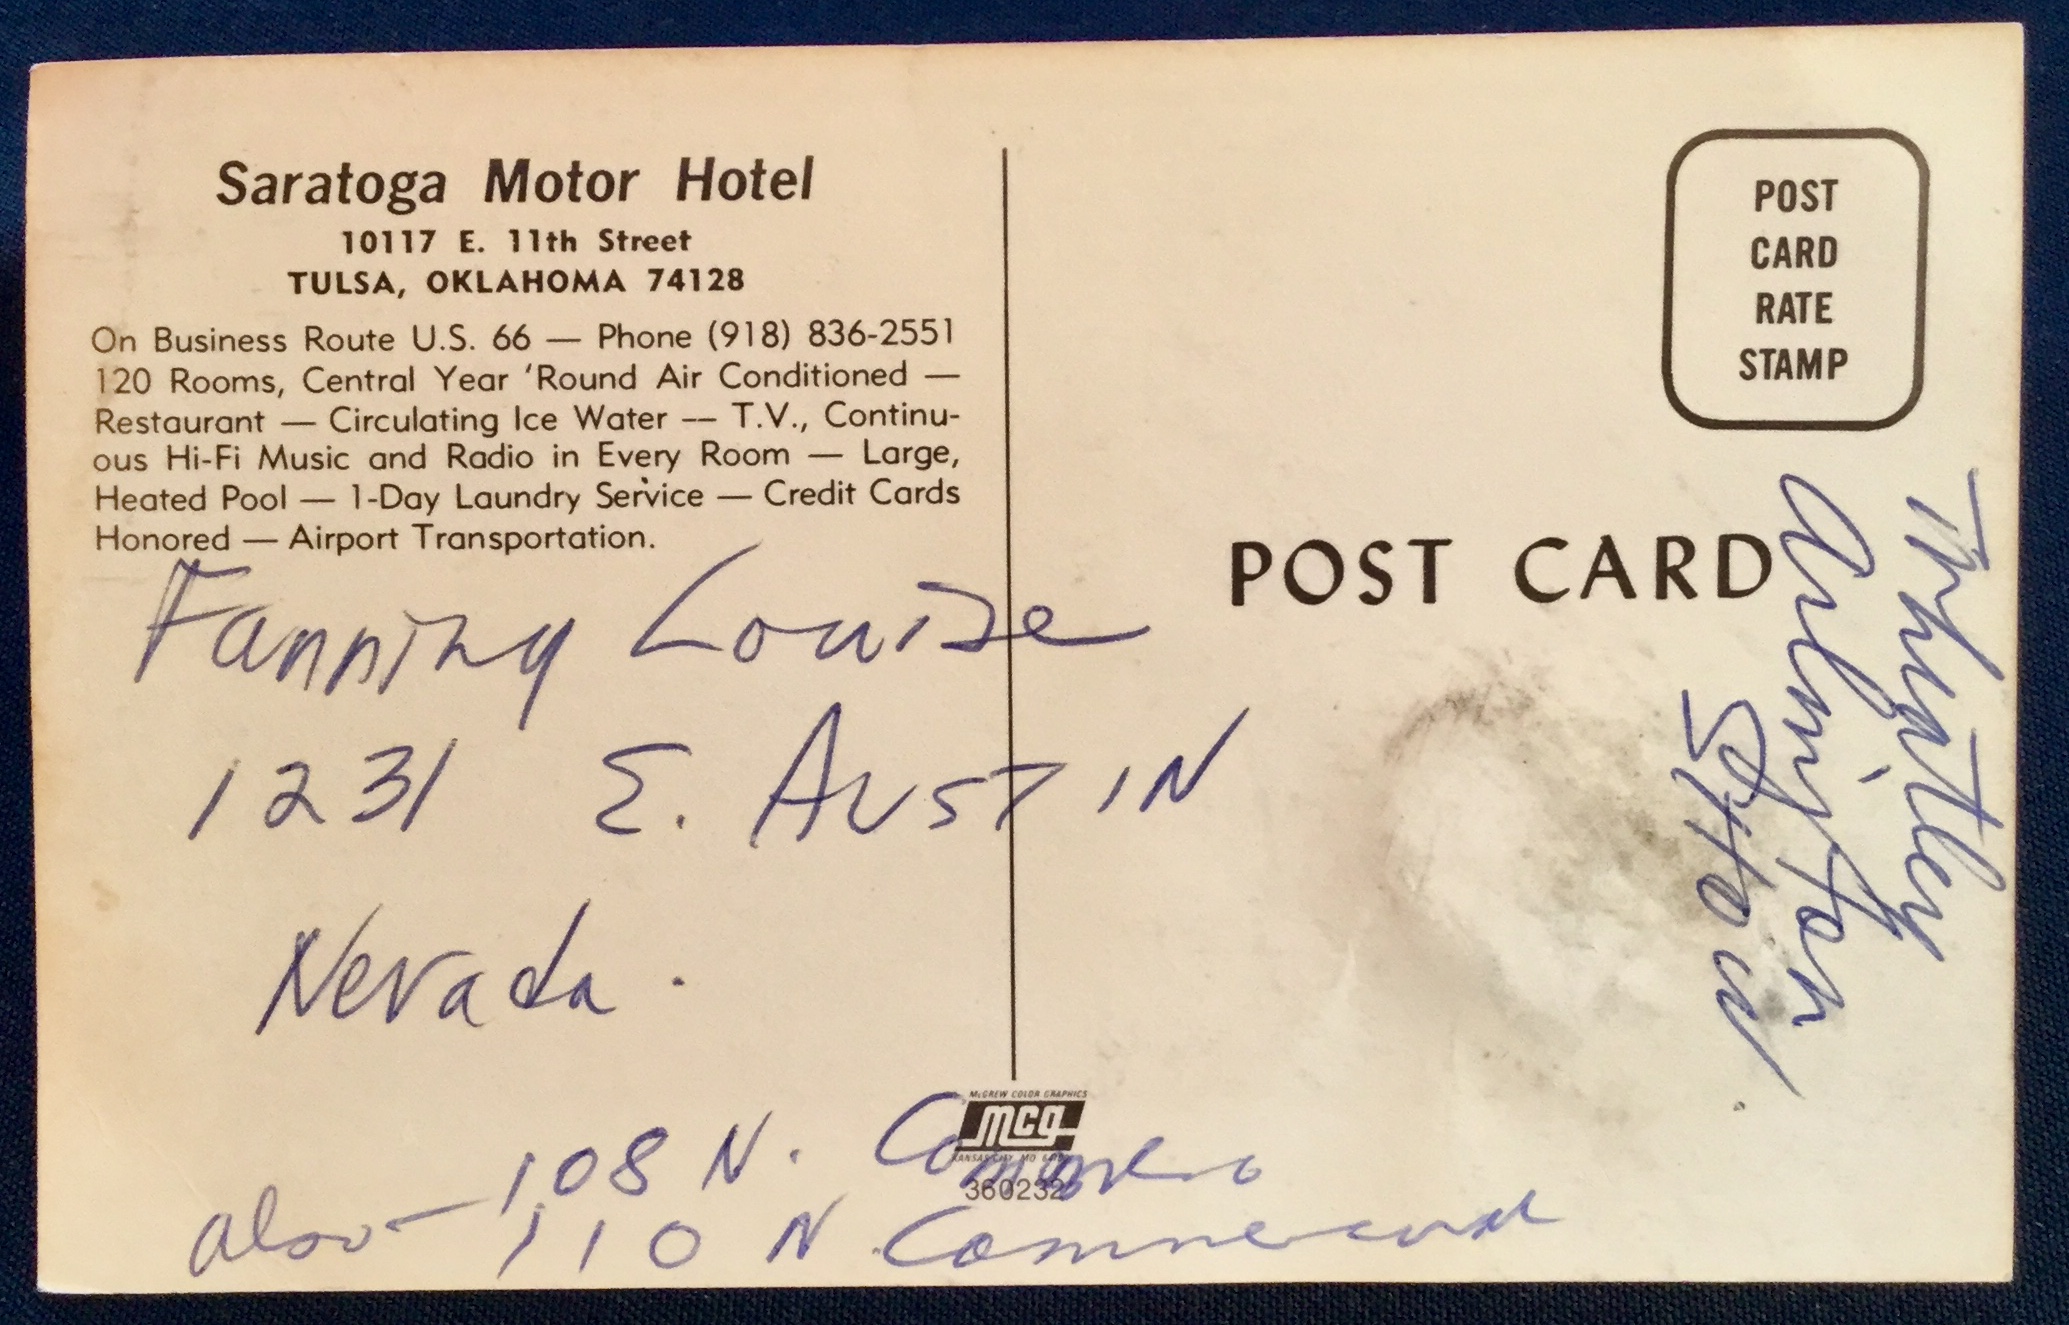 Saratoga Motor Hotel
10117 E. 11th Street
TULSA, OKLAHOMA 74128
On Business Route U.S. 66 — Phone (918) 836-2551
120 Rooms, Central Year 'Round Air Conditioned —
Restaurant — Circulating Ice Water — T.V., Continu-
ous Hi-Fi Music and Radio in Every Room — Large,
Heated Pool — 1-Day Laundry Service — Credit Cards
Honored — Airport Transportation.
POST
CARD
RATE
STAMP
POST CARD
Fanning Louise
1231 E. AUSTIN
Nevada.
108 N.
also — 110 N. Commercial
McGREW COLOR GRAPHICS
mcg
KANSAS CITY, MO
360232
Arlington